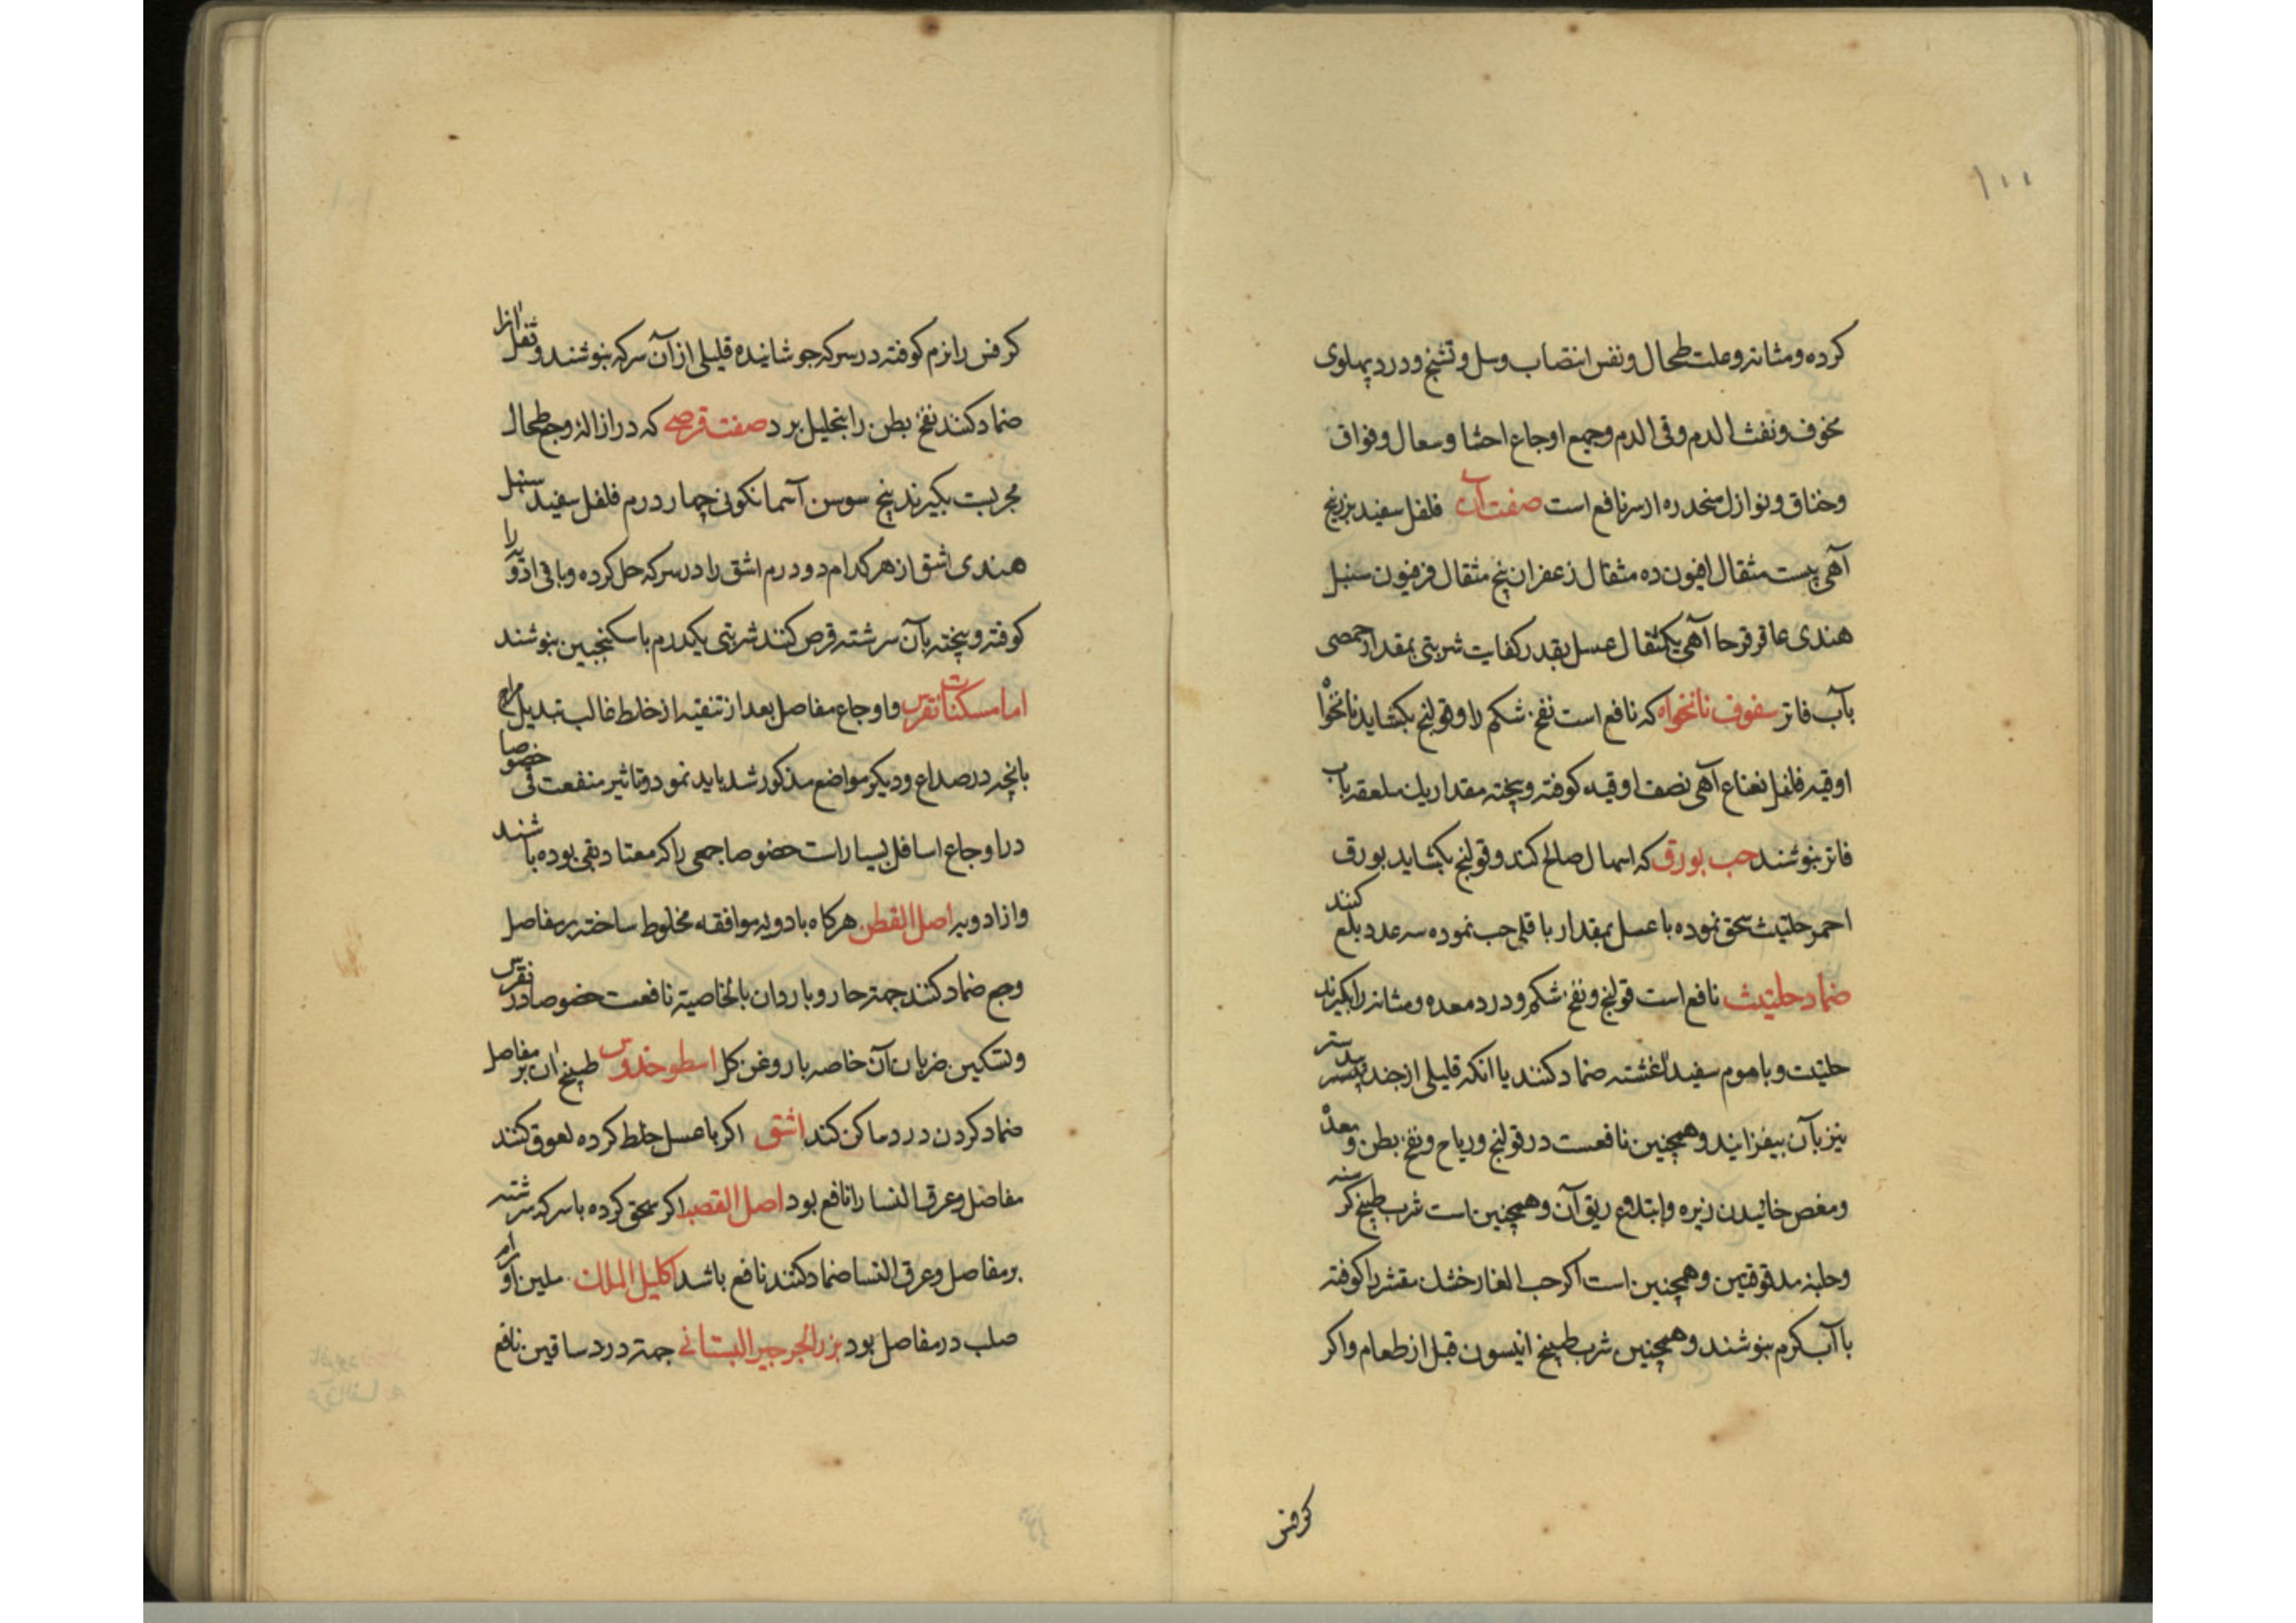 ۱۰۰
کرده ومثانه وعلت طحال ونفس انتصاب وسل وتشنج ودرد پهلوی
مخوف ونفث الدم وقی الدم وجمیع اوجاع احشا وسعال وفواق
وخناق ونوازل منحدره از سر نافع است صفت آن فلفل سفید بزر بنج
آهی بیست مثقال افیون ده مثقال زعفران پنج مثقال فرفیون سنبل
هندی عاقرقرحا آهی یکمثقال عسل بقدر کفایت شربتی بمقدار حمصی
بآب فاتر سفوف نانخواه که نافع است نفخ شکم را وقولنج بکشاید نانخواه
اوقیه فلفل نعناع آهی نصف اوقیه کوفته وبیخته مقدار یک ملعقه بآب
فاتر بنوشند حب بورق که اسهال صالح کند وقولنج بکشاید بورق
احمر حلتیث سحق نموده با عسل بمقدار باقلی حب نموده سه عدد بلع کنند
ضماد حلتیث نافع است قولنج ونفخ شکم ودرد معده ومثانه را بگیرند
حلتیت وبا موم سفید آغشته ضماد کنند یا انکه قلیلی از جندبیدستر
نیز بآن بیفزایند وهمچنین نافعست در قولنج وریاح ونفخ بطن ومعده
ومغص خائیدن زیره وابتلاع ریق آن وهمچنین است شرب طبیخ
وحلبه مدقوقین وهمچنین است اکر حب الغار خشک مقشر را کوفته
با آب کرم بنوشند وهمچنین شرب طبیخ انیسون قبل از طعام واکر
کرفس
کرفس را نرم کوفته در سرکه جوشانیده قلیلی از آن سرکه بنوشند وثفل آنرا
ضماد کنند نفخ بطن را بتحلیل برد صفت قرصی که در ازالۀ وجع طحال
مجربست بکیرند بیخ سوسن آسمانکونی چهار درم فلفل سفید سنبل
هندی اشق از هر کدام دو درم اشق را در سرکه حل کرده وباقی ادویه را
کوفته وبیخته بآن سرشته قرص کنند شربتی یکدرم با سکنجبین بنوشند
اما مسکنات نقرس واوجاع مفاصل بعد از تنقیه از خلط غالب تبدیل مزاج
بانچه در صداع ودیکر مواضع مذکور شد باید نمود وتاثیر منفعت قی خصوصا
در اوجاع اسافل بسیارات خصوصا جمعی را که معتاد بقی بوده باشند
واز ادویه اصل القطن هرکاه بادویه موافقه مخلوط ساخته بر مفاصل
وجع ضماد کنند جهته حار وبارد ان بالخاصیة نافعست خصوصا در نقرس
وتسکین ضربان آن خاصه با روغن کل اسطوخدوس طبیخ آن بر مفاصل
ضماد کردن درد ساکن کند اشق اکر با عسل خلط کرده لعوق کنند
مفاصل وعرق النسا را نافع بود اصل القصب اکر سحق کرده با سرکه سرشته
بر مفاصل وعرق النسا ضماد کنند نافع باشد اکلیل الملک ملین اورام
صلب در مفاصل بود بزر الجرجیر البستانی جهته درد ساقین نافع